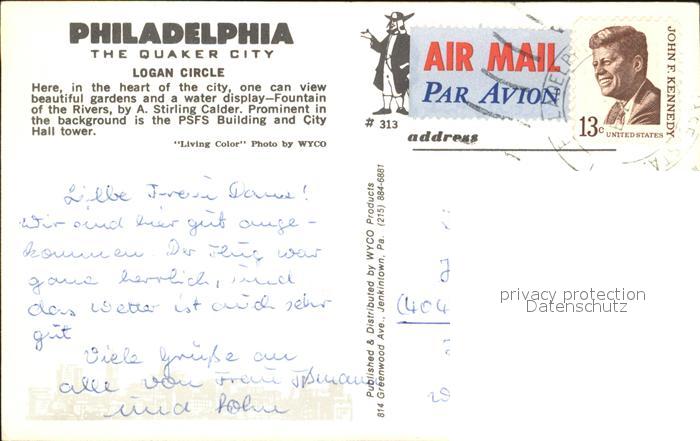 PHILADELPHIA
THE QUAKER CITY
LOGAN CIRCLE
Here, in the heart of the city, one can view
beautiful gardens and a water display—Fountain
of the Rivers, by A. Stirling Calder. Prominent in
the background is the PSFS Building and City
Hall tower.
"Living Color" Photo by WYCO
# 313
AIR MAIL
PAR AVION
JOHN F. KENNEDY
13c UNITED STATES
address
Liebe Frau
Wir sind hier gut ange-
kommen. Der Flug war
ganz herrlich, und
das Wetter ist auch sehr
gut
Viele Grüße an
alle von Frau
und Sohn
Published & Distributed by WYCO Products
814 Greenwood Ave., Jenkintown, Pa. (215) 884-6681
(404
privacy protection
Datenschutz